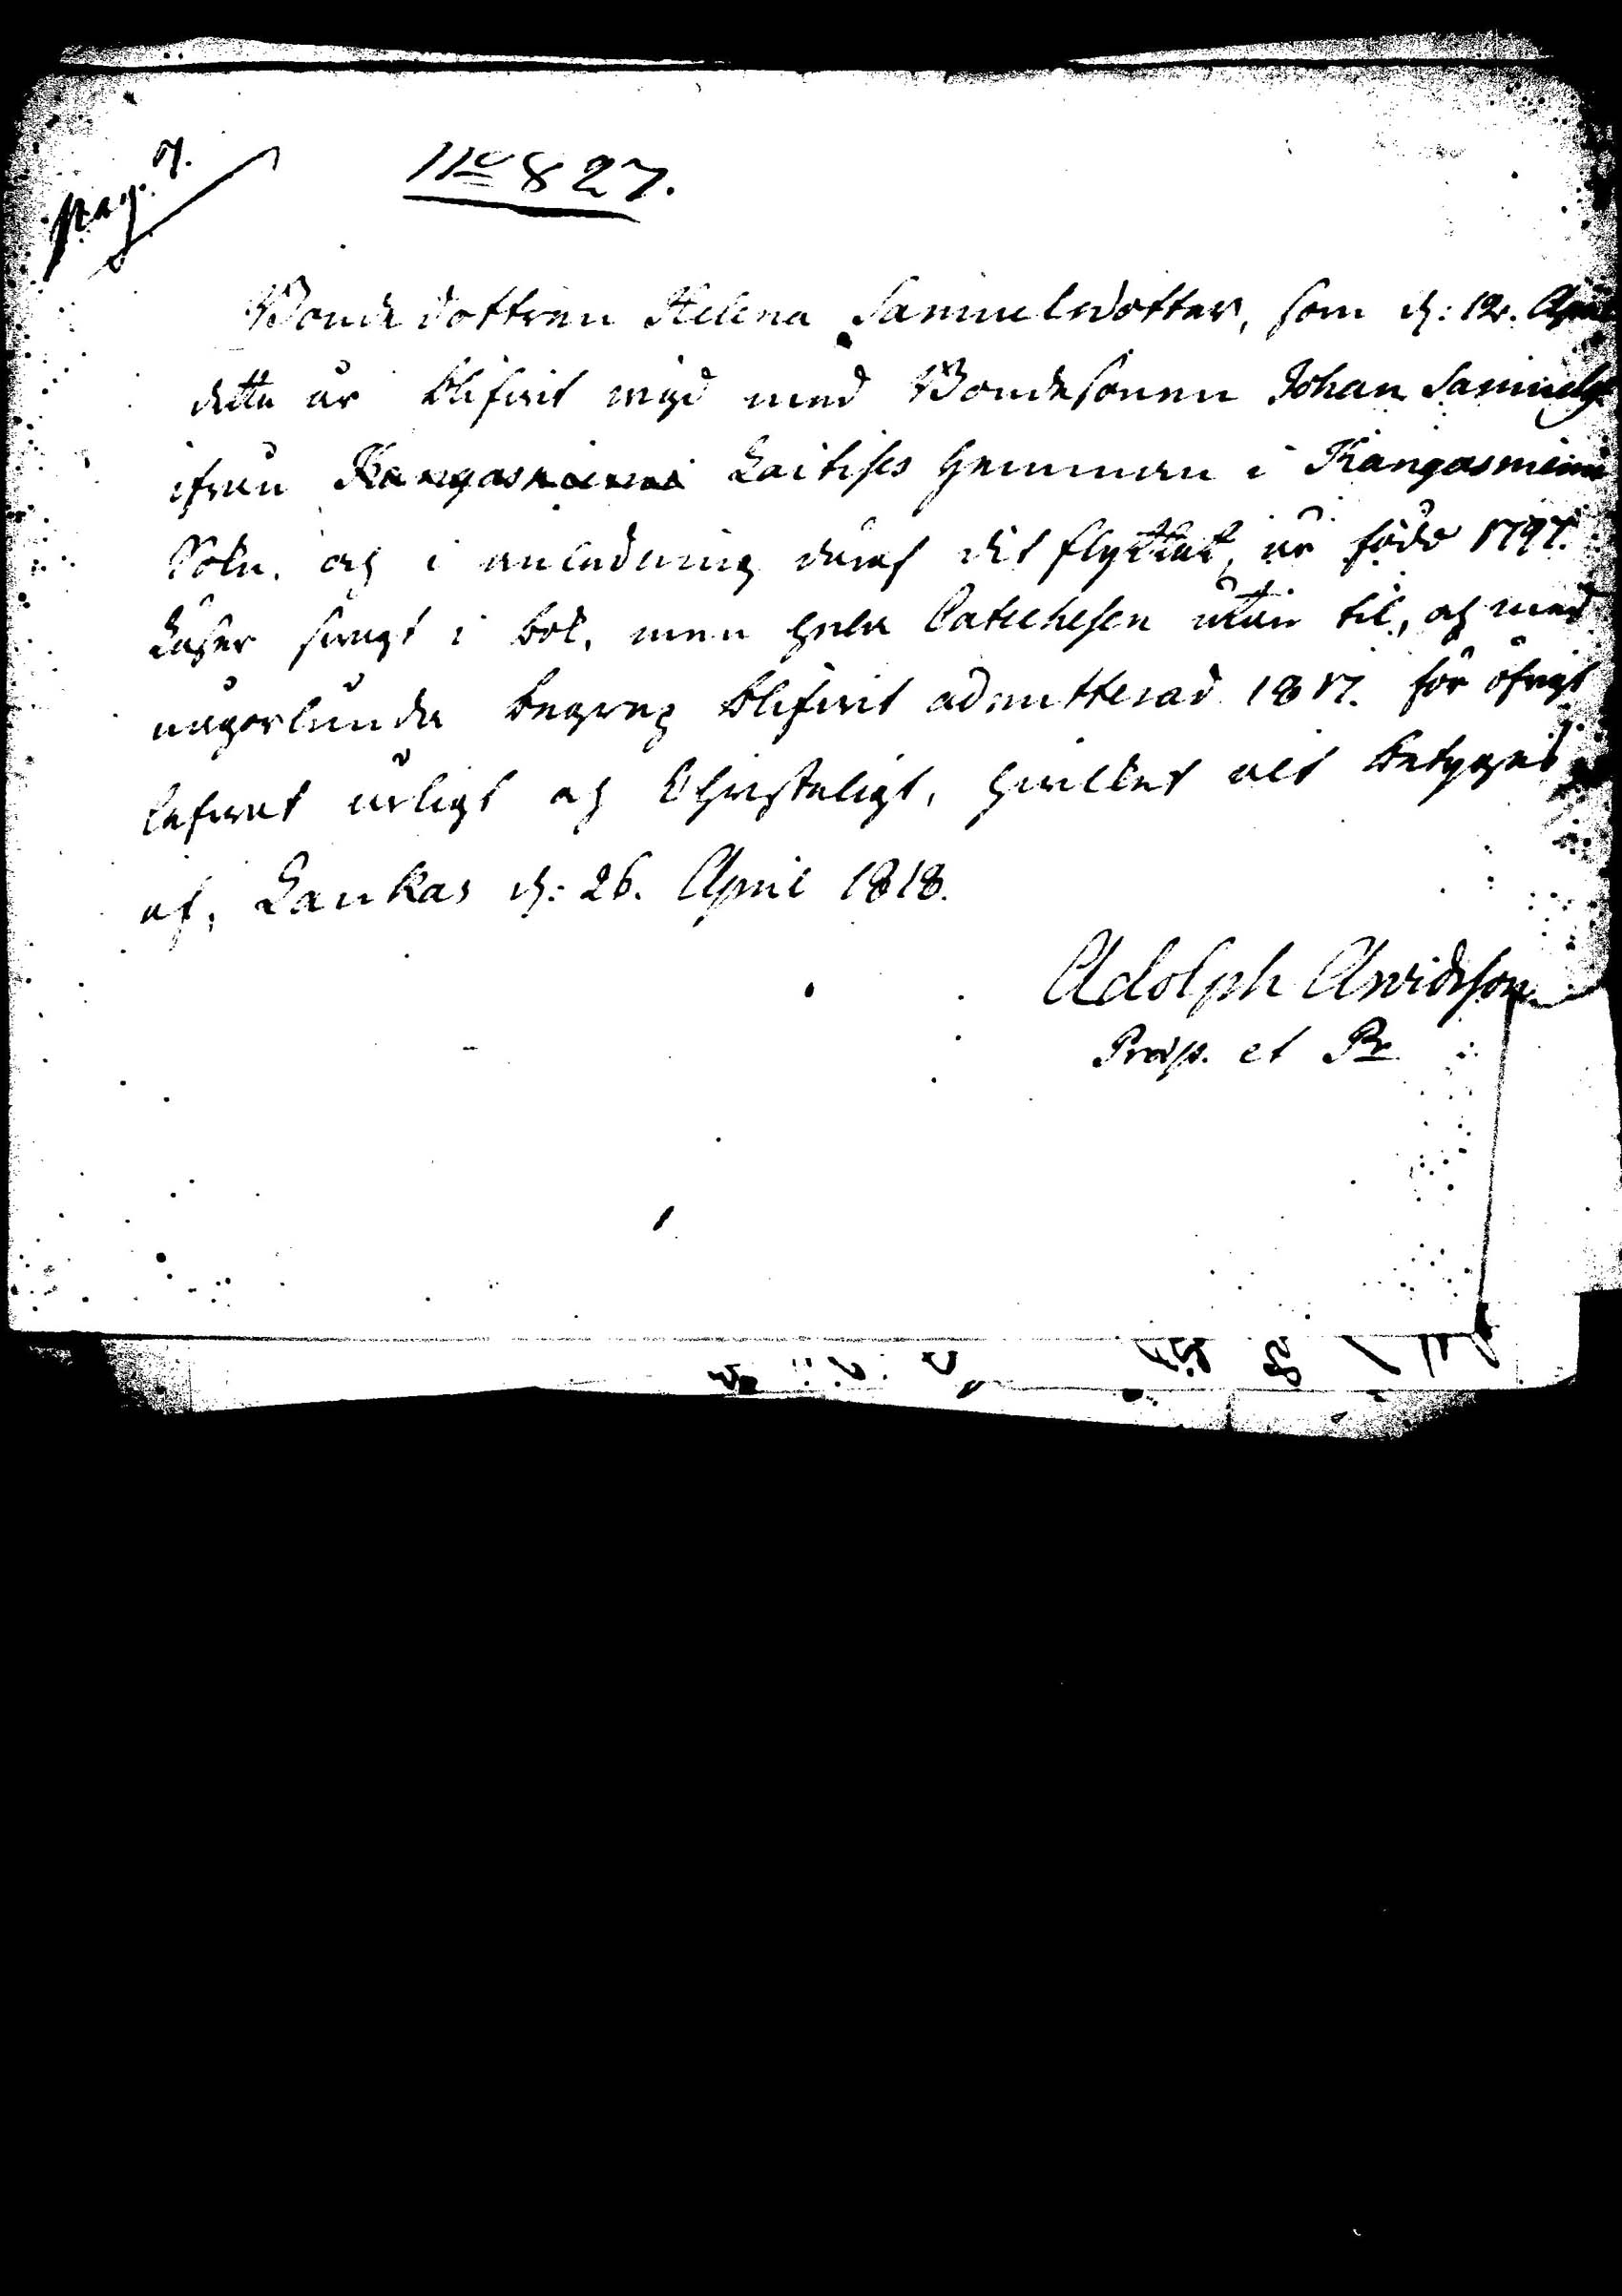 pag. 7.
No 827.
Bonde dottren Helena Samuelsdotter, som d: 12. April
detta år blifwit wigd med Bondesonen Johan Samuels
ifrån Kangasniemi Laitises Hemman i Kangasniemi
Sokn. och i anledning däraf dit flyttat, är född 1797.
Läser swagt i bok, men hela Catechesen utan til, och med
någorlunda begrep blifwit admitterad 1817. för öfrigt
lefwat ärligt och Christeligt, hwilket alt betygas
af, Laukas d: 26. April 1818.
Adolph Arvidsson
Præp. et Pr